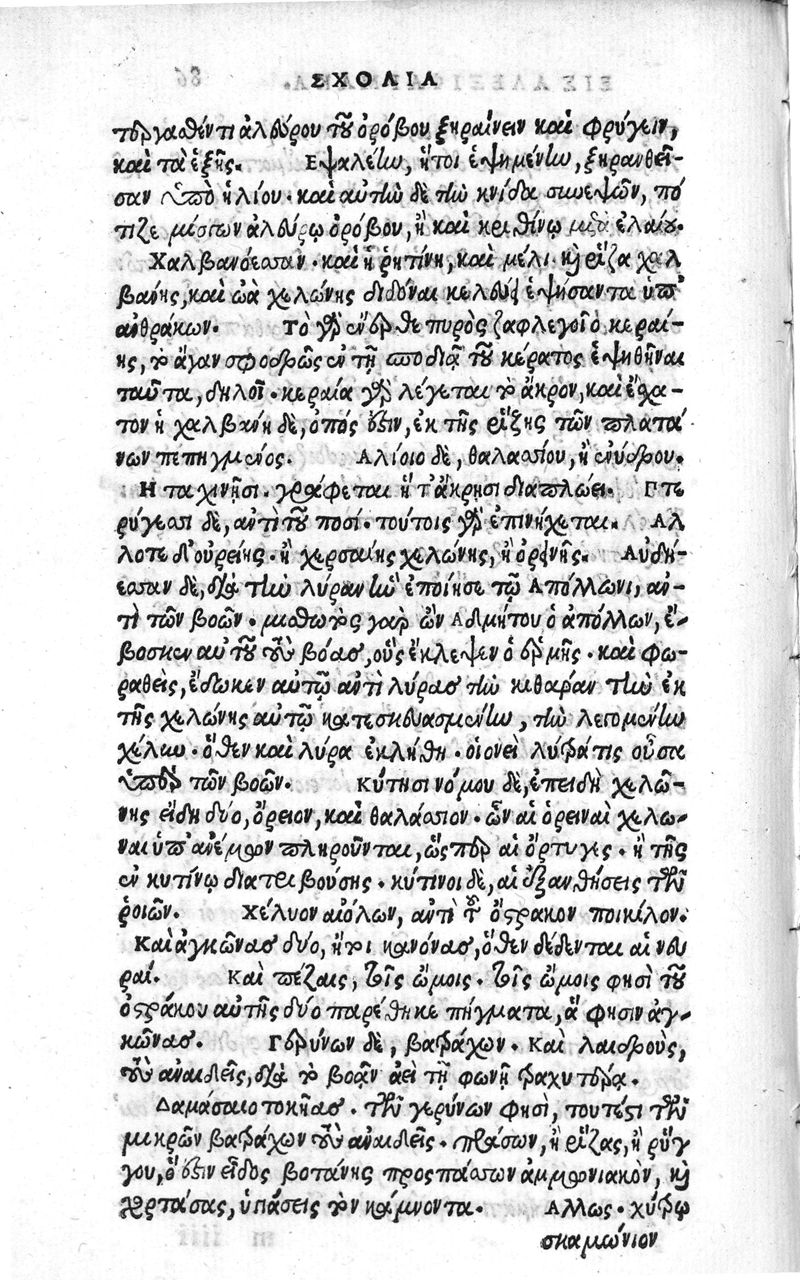 ΣΧΟΛΙΑ
τεργαθέντι ἀλεύρου τοῦ ὀρόβου ξηραίνειν καὶ φρύγειν,
καὶ τὰ ἑξῆς. Εψαλέην, ἤτοι ἑψημένην, ξηρανθεῖ-
σαν ὑπὸ ἡλίου. καὶ αὐτὴν δὲ τὴν κνίδα συνεψῶν, πό
τιζε μίσγων ἀλεύρῳ ὀρόβου, ἢ καὶ κριθίνῳ μετὰ ἐλαίου.
Χαλβανόεσσαν. καὶ ἡ ῥητίνη, καὶ μέλι. καὶ ῥίζα χαλ
βανης, καὶ ὠὰ χελώνης διδόναι κελεύει ἑψήσαντα ὑπ'
ἀνθράκων. Τὸ γὰρ ἔνερθε πυρὸς ζαφλεγοῖο κεραί-
ης, τὸ ἄγαν σφοδρῶς ἐν τῇ σποδιᾷ τοῦ κέρατος ἑψηθῆναι
ταῦτα, δηλοῖ. κεραία γὰρ λέγεται τὸ ἄκρον, καὶ ἔσχα-
τον ἡ χαλβάνη δὲ, ὀπός ἐστιν, ἐκ τῆς ῥίζης τῶν πλατά
νων πεπηγμένος. Αλίοιο δὲ, θαλασσίου, ἢ ἐνύδρου.
Η ταχινῇσι. γράφεται ἢ τ' ἄκρῃσι διαπλώει. Πτε
ρύγεσσι δὲ, ἀντὶ τοῦ ποσί. τούτοις γὰρ ἐπινήχεται. Αλ
λοτε δ' οὐρείης. ἢ χερσαίης χελώνης, ἢ ὀρεινῆς. Αὐδή-
εσσαν δὲ, διὰ τὴν λύραν ἣν ἐποίησε τῷ Απόλλωνι, ἀν-
τὶ τῶν βοῶν. μισθωτὸς γὰρ ὢν Αδμήτου ὁ ἀπόλλων, ἔ-
βοσκεν αὐτοῦ τοὺς βόας, οὓς ἔκλεψεν ὁ ἑρμῆς. καὶ φω-
ραθεὶς, ἔδωκεν αὐτῷ ἀντὶ λύρας τὴν κιθάραν τὴν ἐκ
τῆς χελώνης αὐτῷ κατεσκευασμένην, τὴν λεγομένην
χέλυν. ὅθεν καὶ λύρα ἐκλήθη. οἱονεὶ λύτρα τις οὖσα
ὑπὲρ τῶν βοῶν. Κύτησι νόμου δὲ, ἐπειδὴ χελώ-
νης εἴδη δύο, ὄρειον, καὶ θαλάσσιον. ὧν αἱ ὀρειναὶ χελω-
ναι ὑπ' ἀνέμων πληροῦνται, ὥσπερ αἱ ὄρτυγες. ἢ τῆς
ἐν κυτίνῳ διατριβούσης. κύτινοι δὲ, αἱ ἐξανθήσεις τῶν
ῥοιῶν. Χέλυον αἰόλων, ἀντὶ τοῦ ὄστρακον ποικίλον.
Καὶ ἀγκῶνας δύο, ἤτοι κανόνας, ὅθεν δέδενται αἱ νευ
ραί. Καὶ πέζαις, τοῖς ὤμοις. τοῖς ὤμοις φησὶ τοῦ
ὀστράκου αὐτῆς δύο παρέθηκε πήγματα, ἅ φησιν ἀγ-
κῶνας. Γερύνων δὲ, βατράχων. Καὶ λαιδροὺς,
τοὺς ἀναιδεῖς, διὰ τὸ βοᾶν ἀεὶ τῇ φωνῇ τραχυτέρᾳ.
Δαμάσαιο τοκῆας. τῶν γερύνων φησὶ, τουτέστι τῶν
μικρῶν βατράχων τοὺς ἀναιδεῖς. πλάσων, ἢ ῥίζας, ἢ ῥύγ
γου, ὅ ἐστιν εἶδος βοτάνης προσπάσσων ἀμμωνιακὸν, καὶ
χορτάσας, ὑπάσεις τὸν κάμνοντα. Αλλως. χύτρῳ
σκαμώνιον